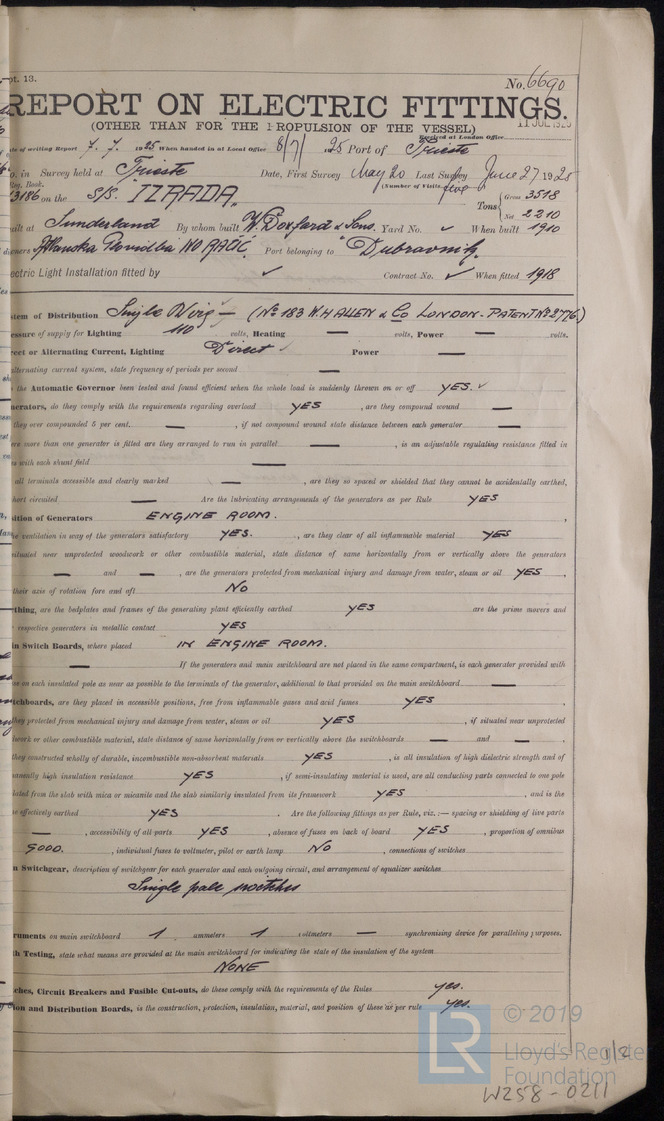 pt. 13.
No. 6690
REPORT ON ELECTRIC FITTINGS.
(OTHER THAN FOR THE PROPULSION OF THE VESSEL)
Received at London Office
11 JUL 1925
te of writing Report 7. 7. 1925 When handed in at Local Office 8/7/ 1925 Port of Trieste
o. in Survey held at Trieste Date, First Survey May 20 Last Survey June 27 1925
Reg. Book. (Number of Visits five)
3186 on the S/S. "IZRADA" Tons { Gross 3518 Net 2210
uilt at Sunderland By whom built W. Doxford & Sons. Yard No. ✓ When built 1910
Owners Plovidba Port belonging to Dubrovnik
ectric Light Installation fitted by ✓ Contract No. ✓ When fitted 1918
stem of Distribution Single Wire — (No 183 W.H ALLEN & Co LONDON - PATENT No 2776.)
essure of supply for Lighting 110 volts, Heating — volts, Power — volts.
rect or Alternating Current, Lighting Direct ✓ Power —
alternating current system, state frequency of periods per second —
the Automatic Governor been tested and found efficient when the whole load is suddenly thrown on or off YES. ✓
nerators, do they comply with the requirements regarding overload YES , are they compound wound —
they over compounded 5 per cent. — , if not compound wound state distance between each generator —
ere more than one generator is fitted are they arranged to run in parallel — , is an adjustable regulating resistance fitted in
s with each shunt field —
all terminals accessible and clearly marked — , are they so spaced or shielded that they cannot be accidentally earthed,
hort circuited — Are the lubricating arrangements of the generators as per Rule YES
sition of Generators ENGINE ROOM.
he ventilation in way of the generators satisfactory YES. , are they clear of all inflammable material YES
situated near unprotected woodwork or other combustible material, state distance of same horizontally from or vertically above the generators
— and — , are the generators protected from mechanical injury and damage from water, steam or oil YES ,
their axis of rotation fore and aft NO
rthing, are the bedplates and frames of the generating plant efficiently earthed YES are the prime movers and
respective generators in metallic contact YES
in Switch Boards, where placed IN ENGINE ROOM.
— If the generators and main switchboard are not placed in the same compartment, is each generator provided with
se on each insulated pole as near as possible to the terminals of the generator, additional to that provided on the main switchboard —
tchboards, are they placed in accessible positions, free from inflammable gases and acid fumes YES ,
they protected from mechanical injury and damage from water, steam or oil YES , if situated near unprotected
dwork or other combustible material, state distance of same horizontally from or vertically above the switchboards — and — ,
they constructed wholly of durable, incombustible non-absorbent materials YES , is all insulation of high dielectric strength and of
anently high insulation resistance YES , if semi-insulating material is used, are all conducting parts connected to one pole
lated from the slab with mica or micanite and the slab similarly insulated from its framework YES , and is the
e effectively earthed YES . Are the following fittings as per Rule, viz.:— spacing or shielding of live parts
— , accessibility of all parts YES , absence of fuses on back of board YES , proportion of omnibus
GOOD. , individual fuses to voltmeter, pilot or earth lamp NO , connections of switches
n Switchgear, description of switchgear for each generator and each outgoing circuit, and arrangement of equalizer switches
Single pole switches
ruments on main switchboard 1 ammeters 1 voltmeters — synchronising device for paralleling purposes.
th Testing, state what means are provided at the main switchboard for indicating the state of the insulation of the system
NONE
ches, Circuit Breakers and Fusible Cut-outs, do these comply with the requirements of the Rules yes.
tion and Distribution Boards, is the construction, protection, insulation, material, and position of these as per rule yes.
LR
© 2019
Lloyd's Register
Foundation
1/2
W258-0211